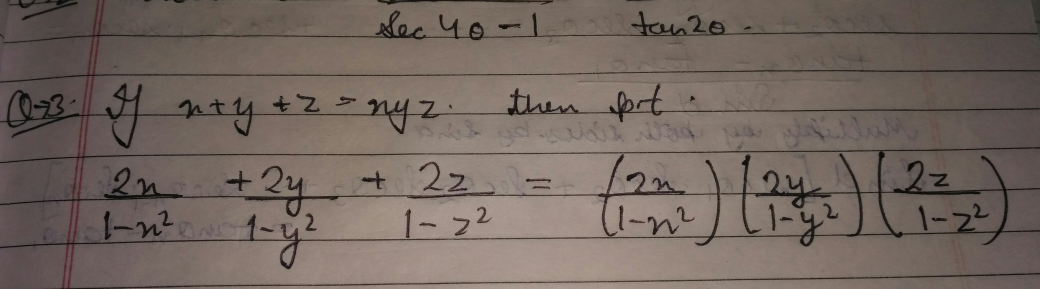 sec 4θ - 1 tan2θ.
Q→3. If x+y+z = xyz. then prt.
2x/1-x² + 2y/1-y² + 2z/1-z² = (2x/1-x²) (2y/1-y²) (2z/1-z²)